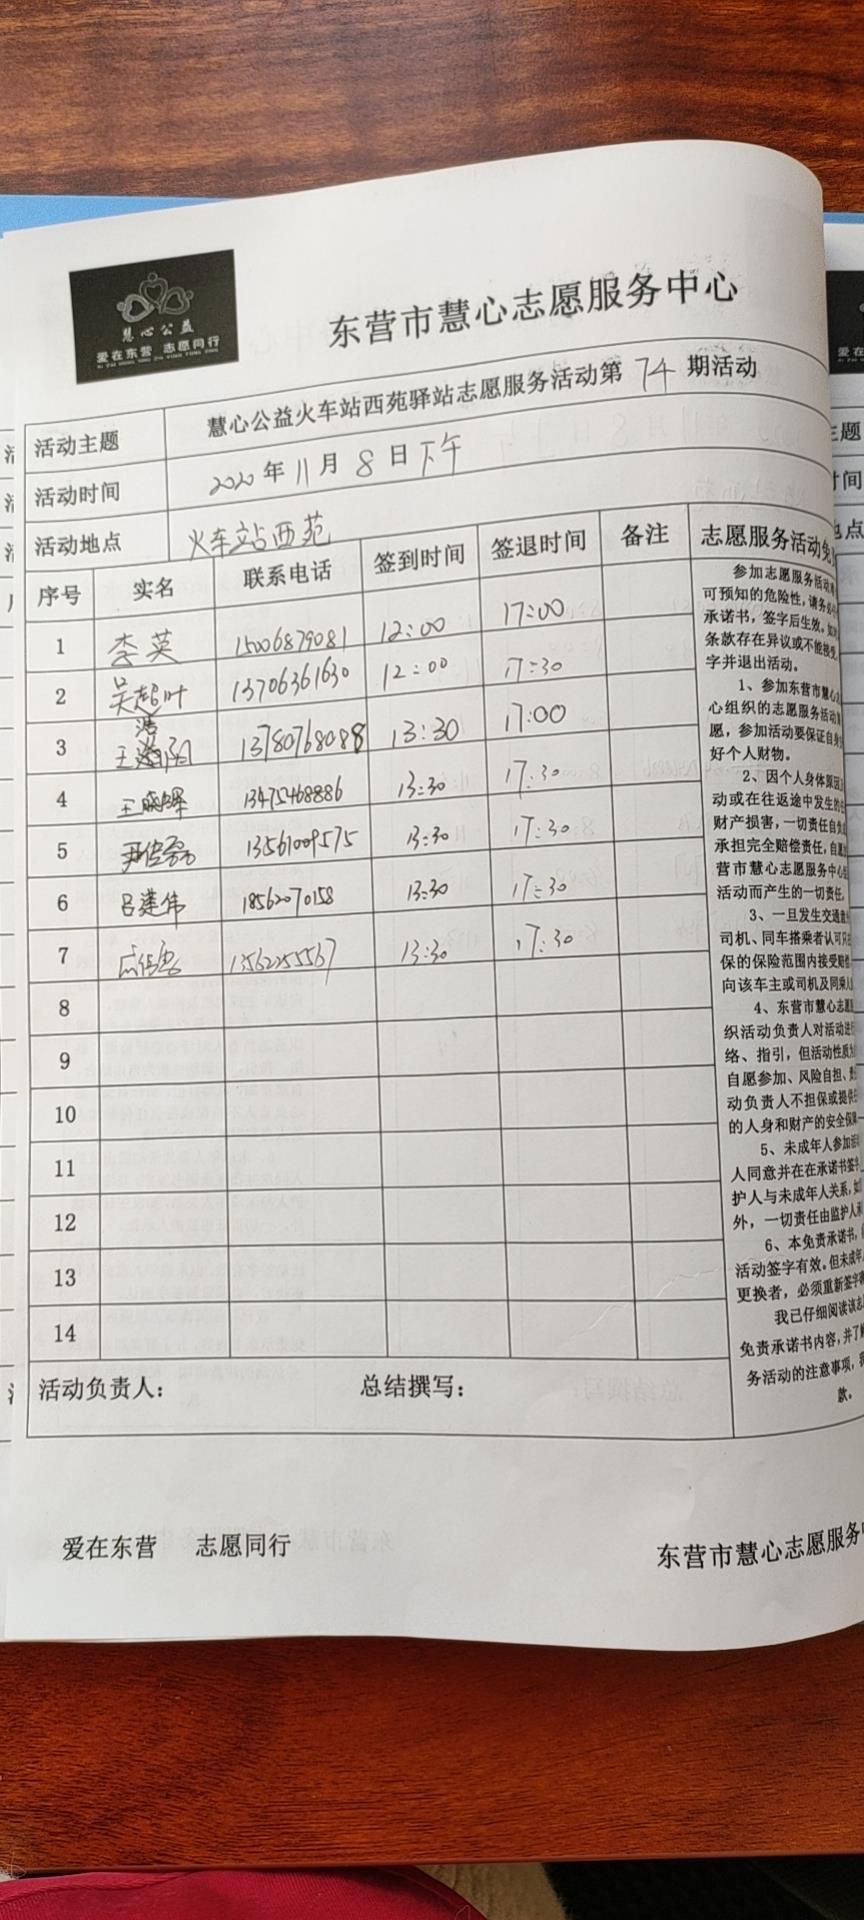 慧心公益
爱在东营 志愿同行
东营市慧心志愿服务中心
活动主题 慧心公益火车站西苑驿站志愿服务活动第 74 期活动
活动时间 2020 年 11 月 8 日 下午
活动地点 火车站西苑
序号 实名 联系电话 签到时间 签退时间 备注 志愿服务活动免
1 李英 15006879081 12:00 17:00
2 吴超叶 13706361630 12:00 17:30
3 13780768088 13:30 17:00
4 13475468886 13:30 17:30
5 13561009575 13:30 17:30
6 吕建伟 18562070158 13:30 17:30
7 13562255567 13:30 17:30
8
9
10
11
12
13
14
参加志愿服务活动
可预知的危险性,请务必
承诺书,签字后生效。如
条款存在异议或不能接受
字并退出活动。
1、参加东营市慧心
心组织的志愿服务活动
愿,参加活动要保证自身
好个人财物。
2、因个人身体原因
动或在往返途中发生的
财产损害,一切责任自负
承担完全赔偿责任,自愿
营市慧心志愿服务中心
活动而产生的一切责任。
3、一旦发生交通
司机、同车搭乘者认可只
保的保险范围内接受赔偿
向该车主或司机及同乘人
4、东营市慧心志愿
织活动负责人对活动进
络、指引,但活动性质为
自愿参加、风险自担、责
动负责人不担保或提供
的人身和财产的安全保
5、未成年人参加活
人同意并在在承诺书签
护人与未成年人关系,如
外,一切责任由监护人
6、本免责承诺书,
活动签字有效。但未成年
更换者,必须重新签字
我已仔细阅读该志
免责承诺书内容,并了
务活动的注意事项,我
款。
活动负责人: 总结撰写:
爱在东营 志愿同行 东营市慧心志愿服务中